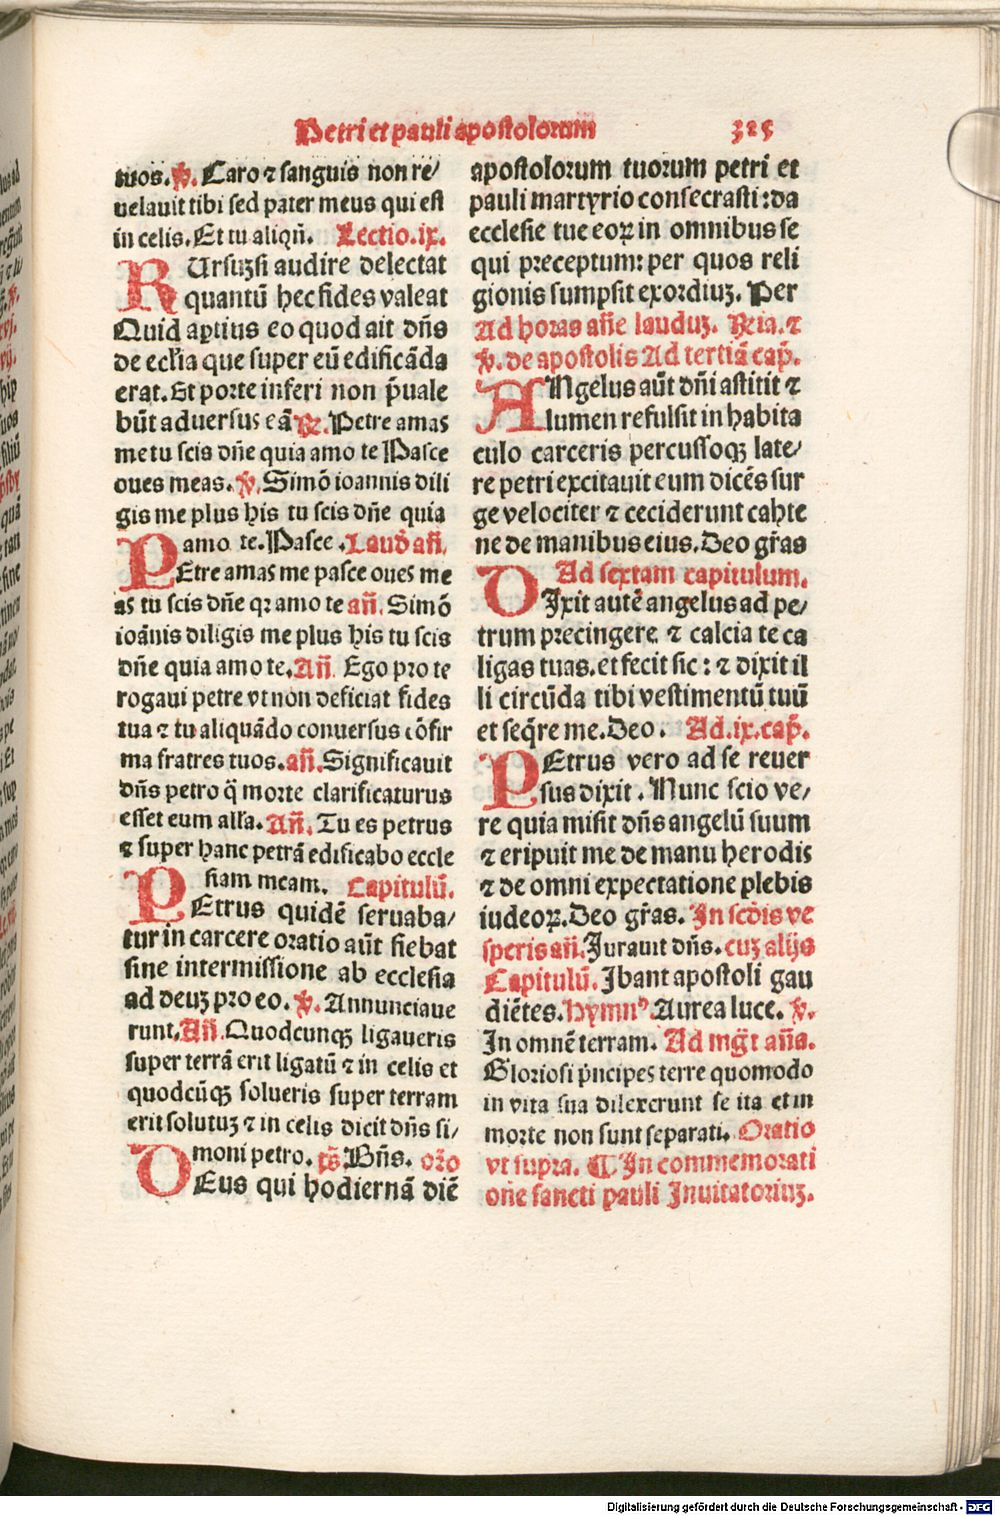 Petri et pauli apostolorum 325
tuos. ℣. Caro ⁊ sanguis non re/
uelauit tibi sed pater meus qui est
in celis. Et tu aliqñ. Lectio. ix.
RUrsuꝫ si audire delectat
quantū hec fides valeat
Quid aptius eo quod ait dñs
de ecl'ia que super eū edificāda
erat. Et porte inferi non p̄uale
būt aduersus eā ℟. Petre amas
me tu scis dñe quia amo te Pasce
oues meas. ℣. Simō ioannis dili
gis me plus his tu scis dñe quia
amo te. Pasce. Laud' añ.
PEtre amas me pasce oues me
as tu scis dñe qꝛ amo te añ. Simō
ioānis diligis me plus his tu scis
dñe quia amo te. Añ. Ego pro te
rogaui petre vt non deficiat fides
tua ⁊ tu aliquādo conuersus ↄ̄fir
ma fratres tuos. añ. Significauit
dñs petro q̄ morte clarificaturus
esset eum alľa. Añ. Tu es petrus
⁊ super hanc petrā edificabo eccle
siam meam. Capitulū.
PEtrus quidē seruaba/
tur in carcere oratio aūt fiebat
sine intermissione ab ecclesia
ad deuꝫ pro eo. ℣. Annunciaue
runt. Añ. Quodcunqꝫ ligaueris
super terrā erit ligatū ⁊ in celis et
quodcūqꝫ solueris super terram
erit solutuꝫ ⁊ in celis dicit dñs si/
moni petro. ps̄. Bñs. oꝛ̄o
DEus qui hodiernā diē
apostolorum tuorum petri et
pauli martyrio consecrasti: da
ecclesie tue eoꝝ in omnibus se
qui preceptum: per quos reli
gionis sumpsit exordiuꝫ. Per
Ad horas añe lauduꝫ. ℟ia. ⁊
℣. de apostolis Ad tertiā cap̄.
ANgelus aūt dñi astitit ⁊
lumen refulsit in habita
culo carceris percussoqꝫ late/
re petri excitauit eum dicēs sur
ge velociter ⁊ ceciderunt cathe
ne de manibus eius. Deo gr̄as
Ad sextam capitulum.
DIxit autē angelus ad pe/
trum precingere ⁊ calcia te ca
ligas tuas. et fecit sic: ⁊ dixit il
li circūda tibi vestimentū tuū
et seq̄re me. Deo. Ad. ix. cap̄.
PEtrus vero ad se reuer
sus dixit. Nunc scio ve/
re quia misit dñs angelū suum
⁊ eripuit me de manu herodis
⁊ de omni expectatione plebis
iudeoꝝ. Deo gr̄as. In scd̄is ve
speris añ. Jurauit dñs. cuꝫ alijs
Capitulū. Ibant apostoli gau
diētes. Hymnꝰ. Aurea luce. ℣.
In omnē terram. Ad mg̅t añs.
Gloriosi p̄ncipes terre quomodo
in vita sua dilexerunt se ita et in
morte non sunt separati. Oratio
vt supra. ¶ In commemorati
one sancti pauli Inuitatoriuꝫ.
Digitalisierung gefördert durch die Deutsche Forschungsgemeinschaft - DFG